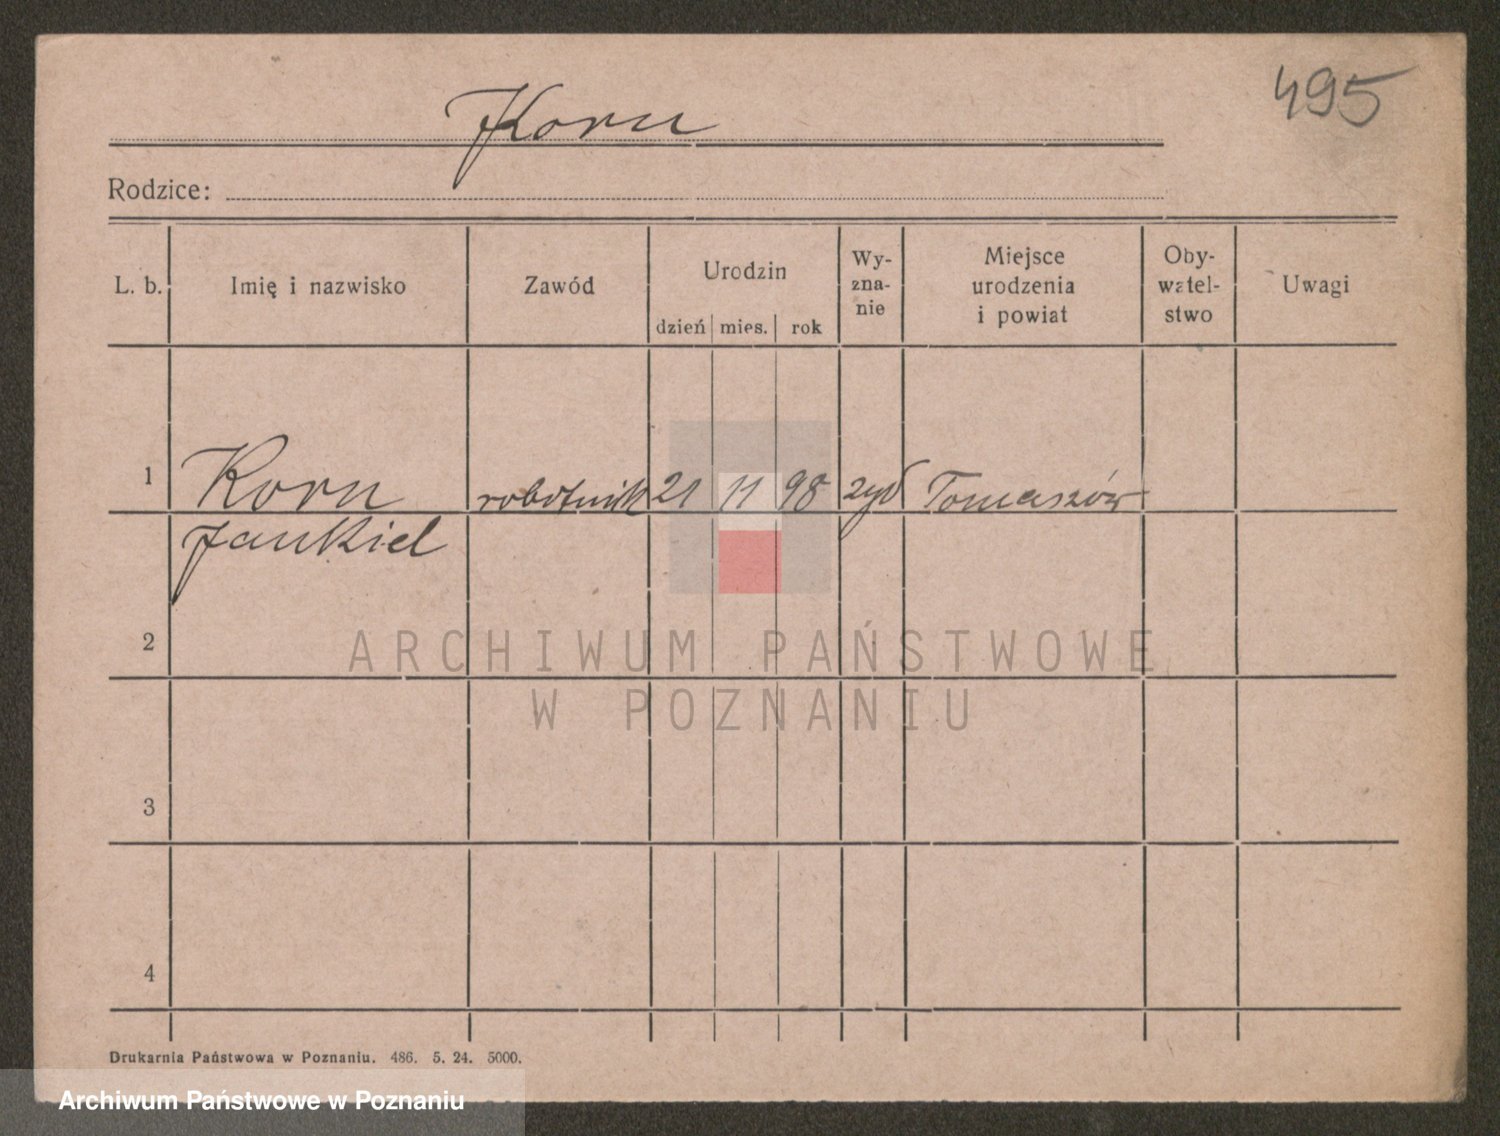 495
Korn
Rodzice:
L. b. Imię i nazwisko Zawód Urodzin dzień mies. rok Wy-zna-nie Miejsce urodzenia i powiat Oby-watel-stwo Uwagi
1 Korn robotnik 21 11 98 żyd Tomaszów
Jankiel
2
ARCHIWUM PAŃSTWOWE
W POZNANIU
3
4
Drukarnia Państwowa w Poznaniu. 486. 5. 24. 5000.
Archiwum Państwowe w Poznaniu